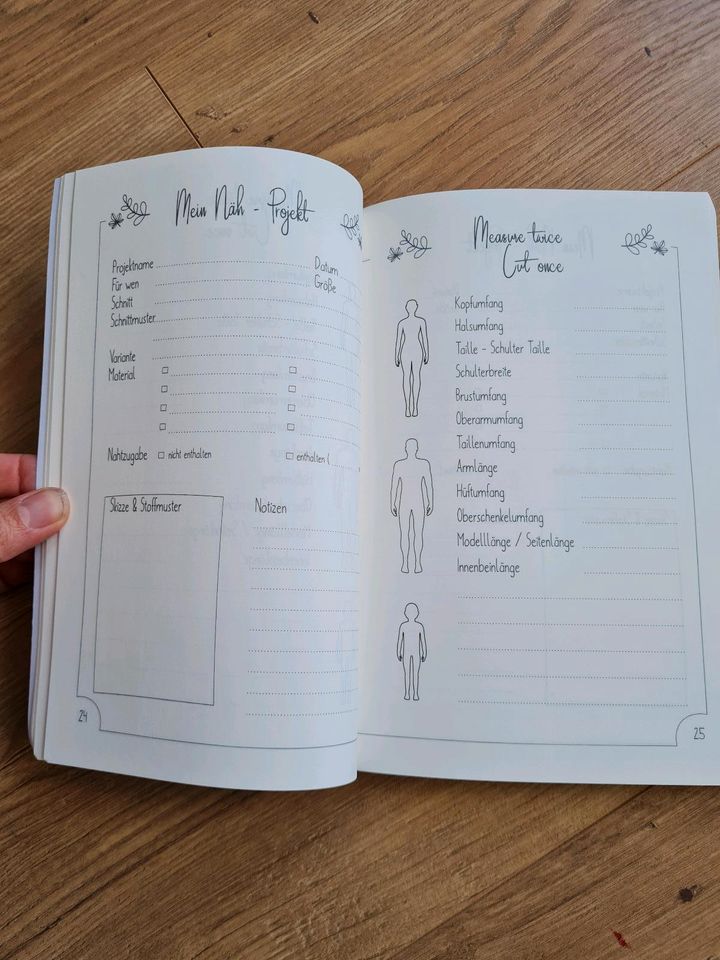 Mein Näh - Projekt
Projektname Datum
Für wen Größe
Schnitt
Schnittmuster
Variante
Material
Nahtzugabe nicht enthalten enthalten (
Skizze & Stoffmuster
Notizen
24
Measure twice
Cut once
Kopfumfang
Halsumfang
Taille - Schulter Taille
Schulterbreite
Brustumfang
Oberarmumfang
Taillenumfang
Armlänge
Hüftumfang
Oberschenkelumfang
Modelllänge / Seitenlänge
Innenbeinlänge
25